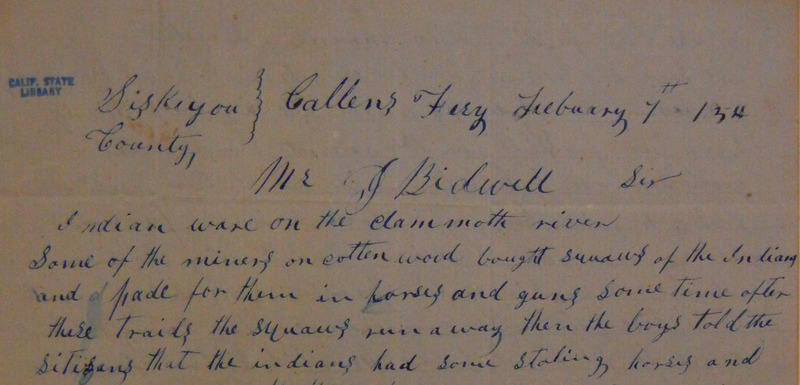 CALIF. STATE
LIBRARY
Siskiyou } Callens Fery Febuary 7th / 54
County,
Mr J Bidwell Sir
Indian ware on the clammoth river
Some of the miners on cotten wood bought squaws of the Indians
and pade for them in horses and guns some time after
these traids the squaws run away then the boys told the
sitizans that the indians had some stoling horses and